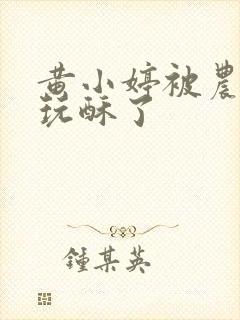 黄小婷被農
玩酥了
鍾某英